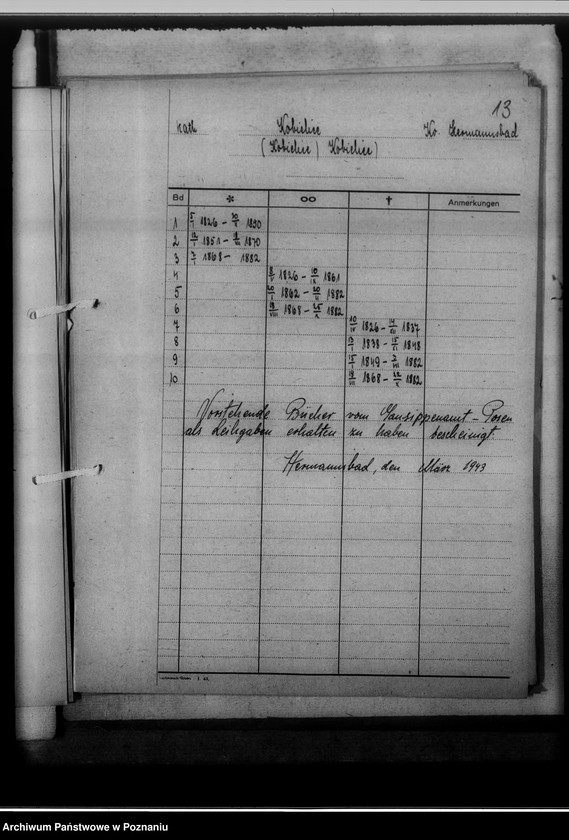 13
kath Kobielice Kr. Hermannsbad
(Kobielice) Kobielice)
Bd * ∞ † Anmerkungen
1 5/I 1826 – 30/I 1890
2 12/I 1851 – 18/III 1870
3 2/I 1868 – 1882
4 8/V 1826 – 10/IX 1861
5 20/I 1862 – 20/II 1882
6 18/VIII 1868 – 25/X 1882
7 10/IV 1826 – 14/XII 1837
8 13/I 1838 – 15/XI 1848
9 15/I 1849 – 2/VII 1882
10 18/VII 1868 – 22/X 1882
Vorstehende Bücher vom Gausippenamt – Posen
als Leihgaben erhalten zu haben bescheinigt.
Hermannsbad, den März 1943
Archiwum Państwowe w Poznaniu